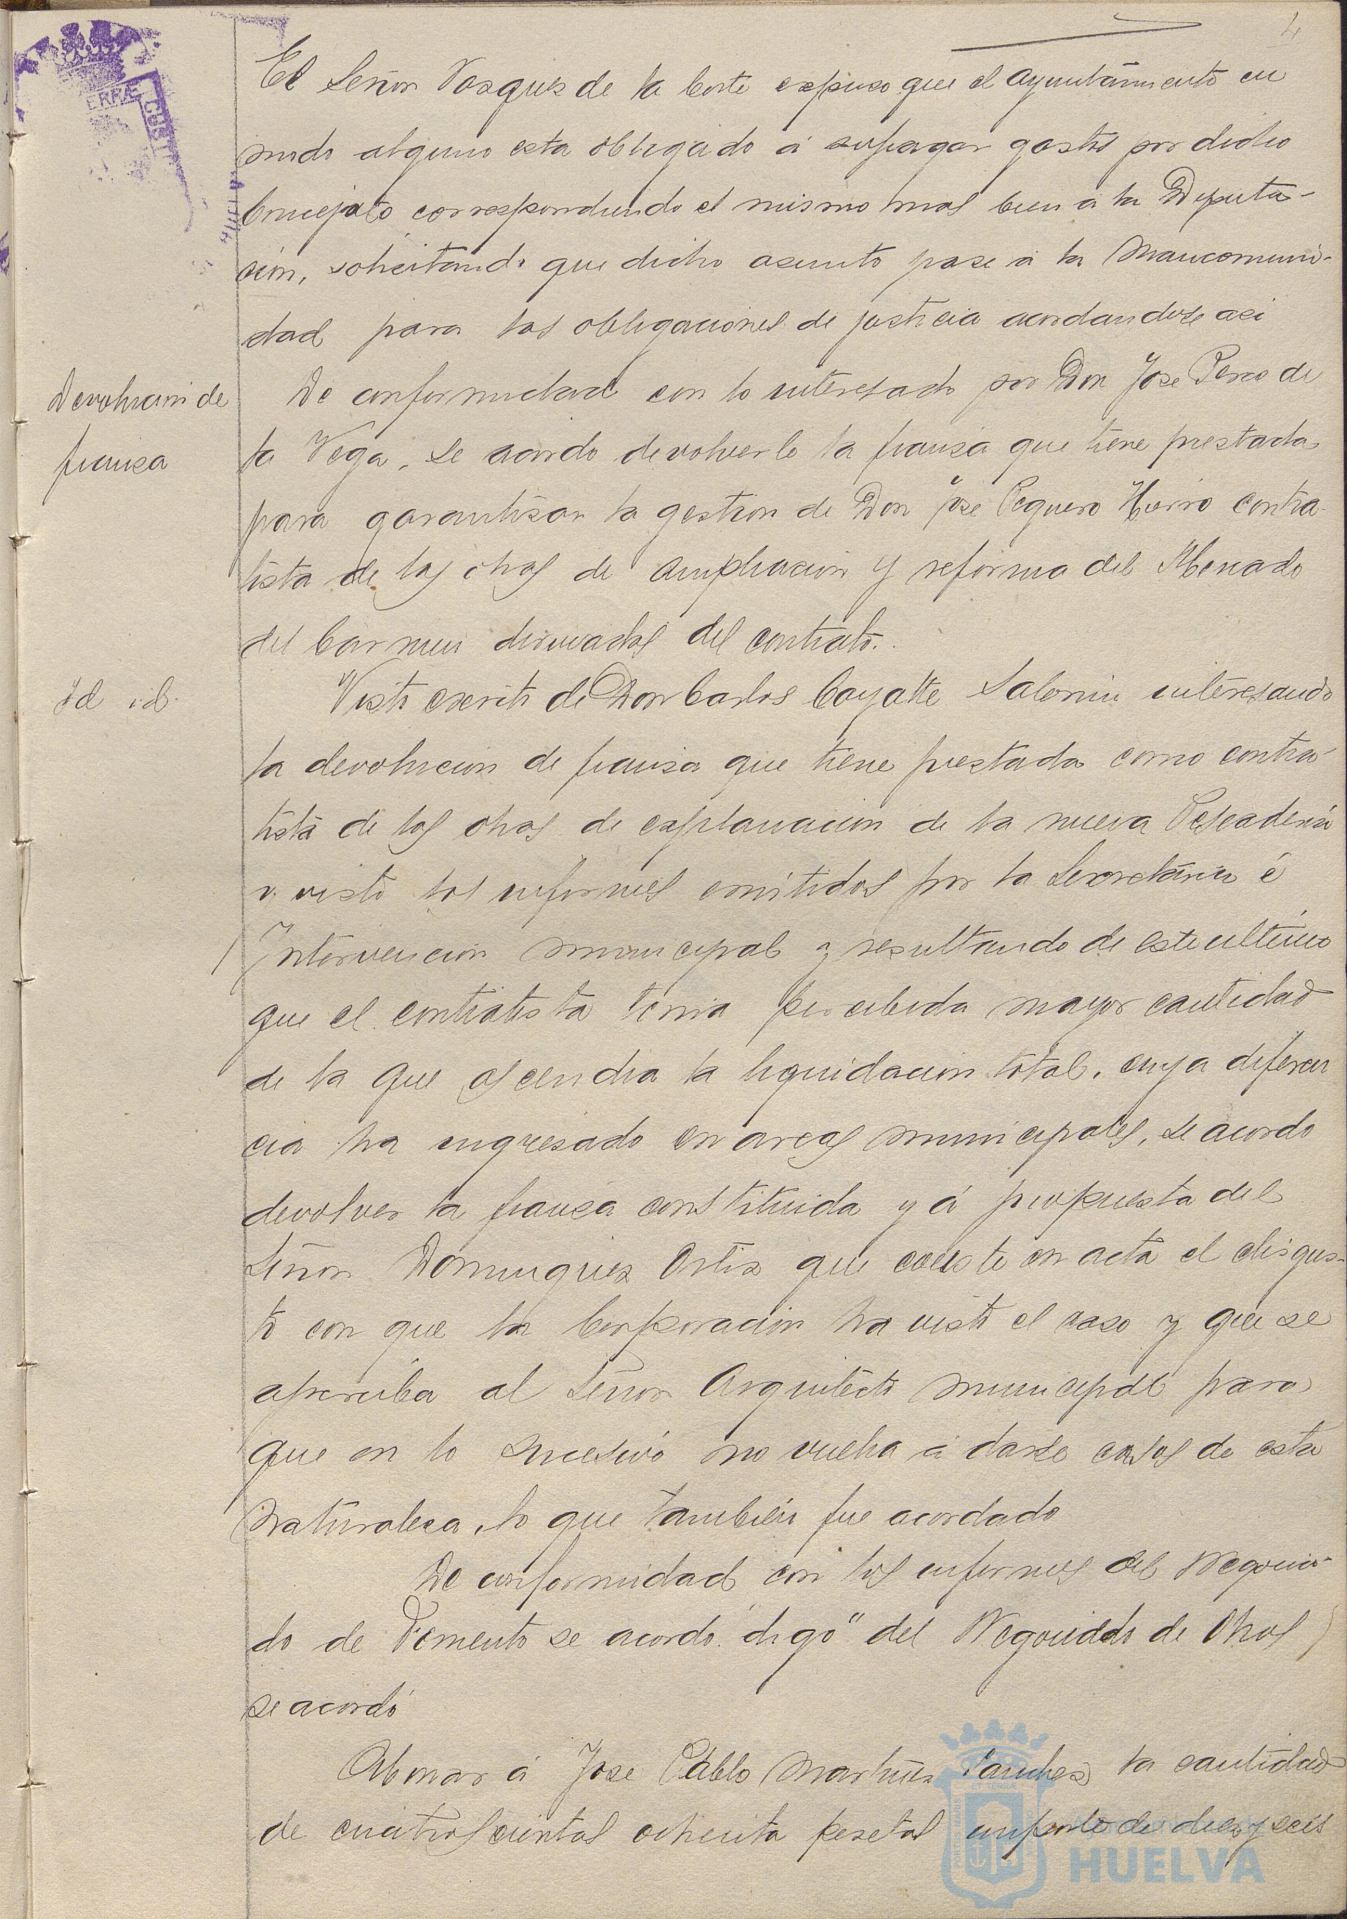 4
El Señor Vasques de la Corte espuso que el ayuntamiento en
modo alguno esta obligado á sufragar gastos por dicho
Concejato, correspondiendo el mismo mas bien a la Diputa-
cion, solicitando que dicho asunto pase a la Mancomuni-
dad para las obligaciones de justicia acordandose asi
Devolucion de
fianza
De conformidad con lo interesado por Don Jose Ponce de
la Vega, se acordo devolverle la fianza que tiene prestada
para garantizar la gestion de Don Jose Peguero Hierro contra-
tista de las obras de ampliacion y reforma del Mercado
del Carmen derivadas del contrato.
Id id.
Visto escrito de Don Carlos Cayatte interesando
la devolucion de fianza que tiene prestada como contra-
tista de las obras de explanacion de la nueva Pescaderia
y visto los informes emitidos por la Secretaria é
Intervencion municipal y resultando de este ultimo
que el contratista tenia percibida mayor cantidad
de la que ascendia la liquidacion total, cuya diferen
cia ha ingresado en arcas municipales, se acordo
devolver la fianza constituida y á propuesta del
Señor Dominguez Ortiz que conste en acta el disgus-
to con que la Corporacion ha visto el caso y que se
aperciba al Señor Arquitecto municipal para
que en lo sucesivo no vuelva á darse casos de esta
naturaleza, lo que tambien fue acordado
De conformidad con los informes del Negocia-
do de Fomento se acordo "digo" del Negociado de Obras
se acordó
Abonar á Jose Pablo Martinez Sanchez la cantidad
de cuatroscientas ochenta pesetas importe de diez y seis
HUELVA